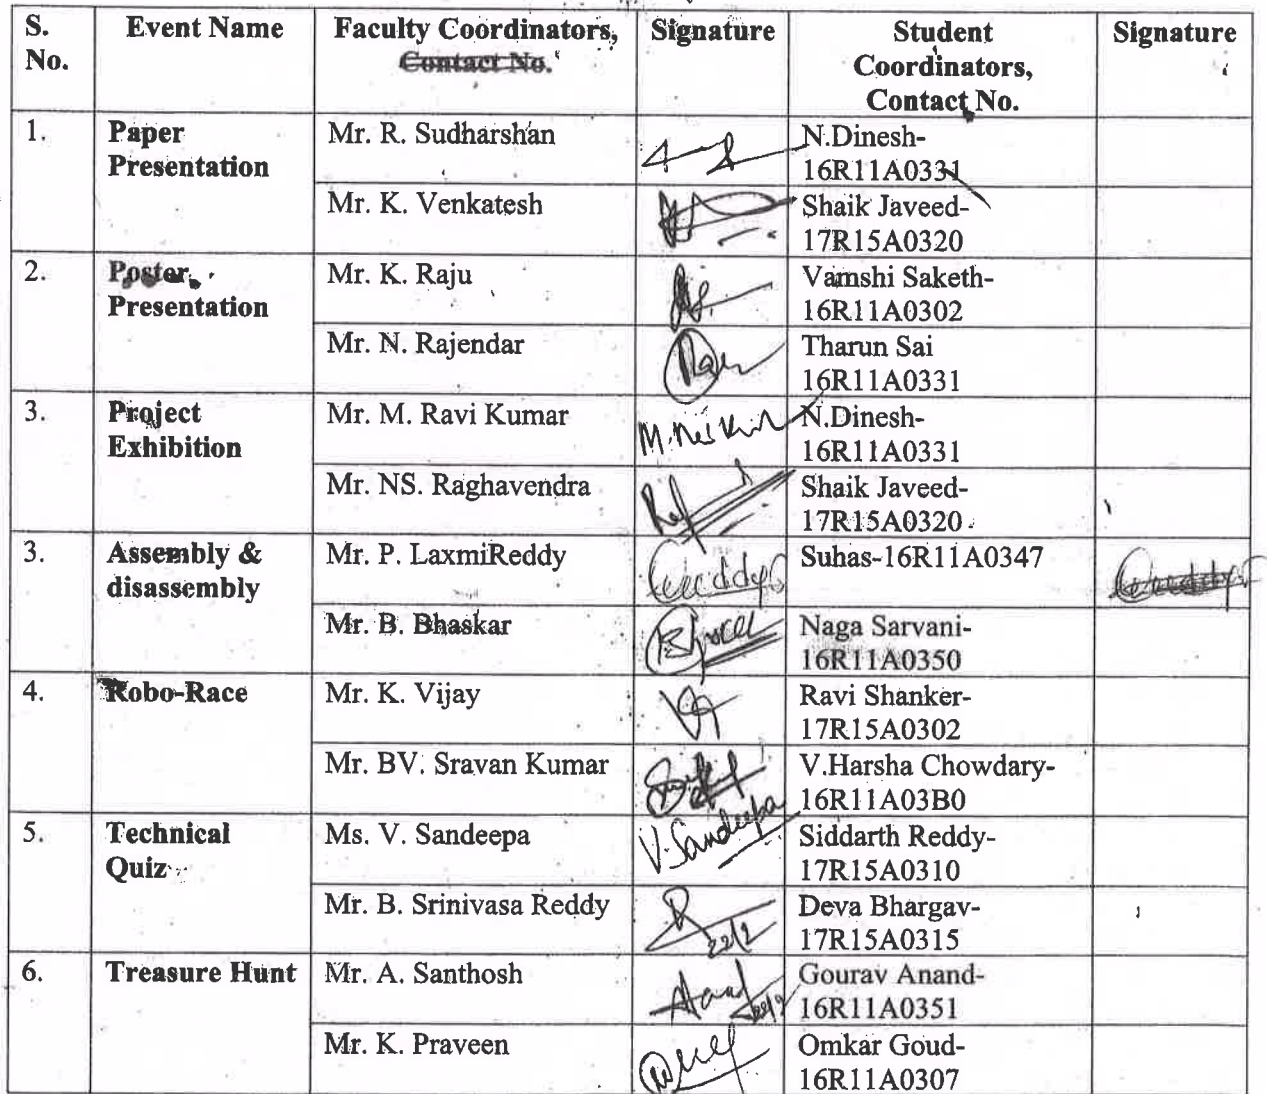 S. No. Event Name Faculty Coordinators, Contact No. Signature Student Coordinators, Contact No. Signature
1. Paper Presentation Mr. R. Sudharshan N.Dinesh-
16R11A0331
Mr. K. Venkatesh Shaik Javeed-
17R15A0320
2. Poster Presentation Mr. K. Raju Vamshi Saketh-
16R11A0302
Mr. N. Rajendar Tharun Sai
16R11A0331
3. Project Exhibition Mr. M. Ravi Kumar N.Dinesh-
16R11A0331
Mr. NS. Raghavendra Shaik Javeed-
17R15A0320
3. Assembly & disassembly Mr. P. LaxmiReddy Suhas-16R11A0347
Mr. B. Bhaskar Naga Sarvani-
16R11A0350
4. Robo-Race Mr. K. Vijay Ravi Shanker-
17R15A0302
Mr. BV. Sravan Kumar V.Harsha Chowdary-
16R11A03B0
5. Technical Quiz Ms. V. Sandeepa V.Sandeepa Siddarth Reddy-
17R15A0310
Mr. B. Srinivasa Reddy 22/2 Deva Bhargav-
17R15A0315
6. Treasure Hunt Mr. A. Santhosh Gourav Anand-
16R11A0351
Mr. K. Praveen Omkar Goud-
16R11A0307